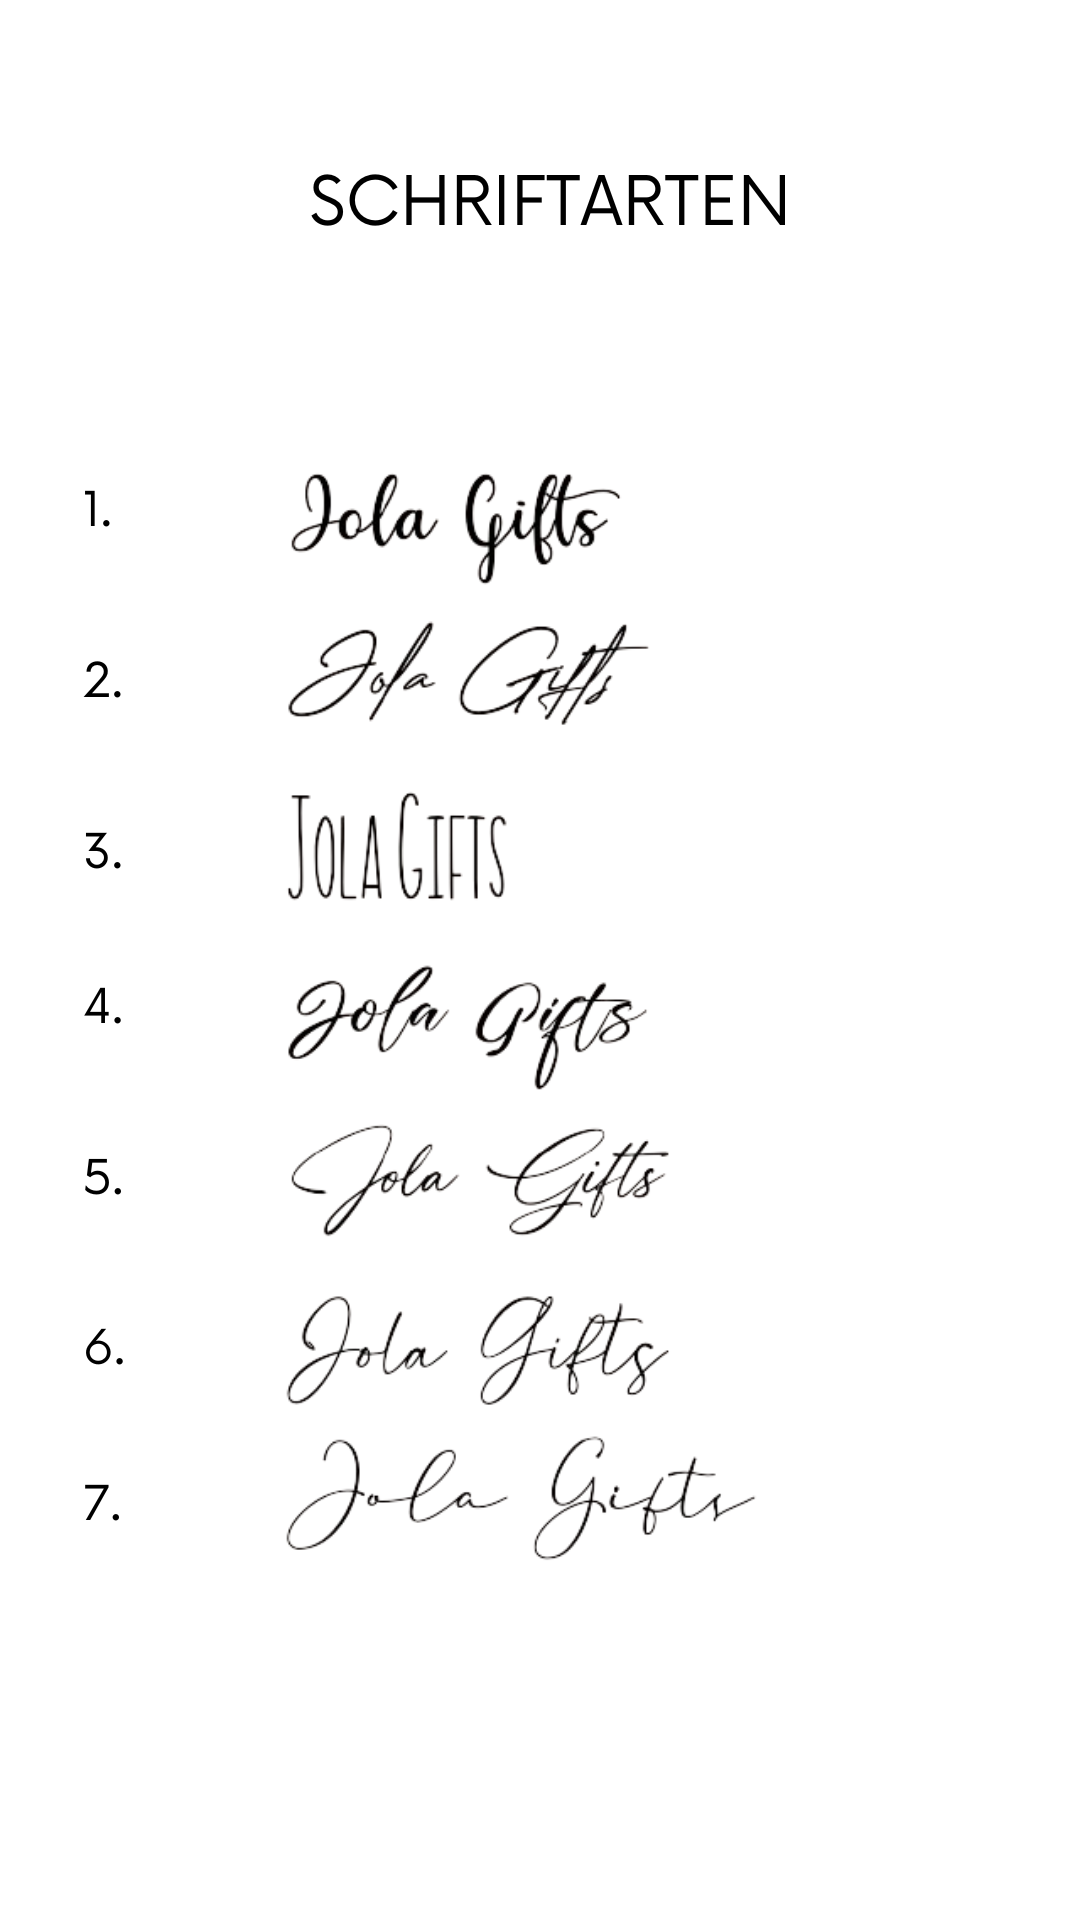 SCHRIFTARTEN
1. Jola Gifts
2. Jola Gifts
3. Jola Gifts
4. Jola Gifts
5. Jola Gifts
6. Jola Gifts
7. Jola Gifts